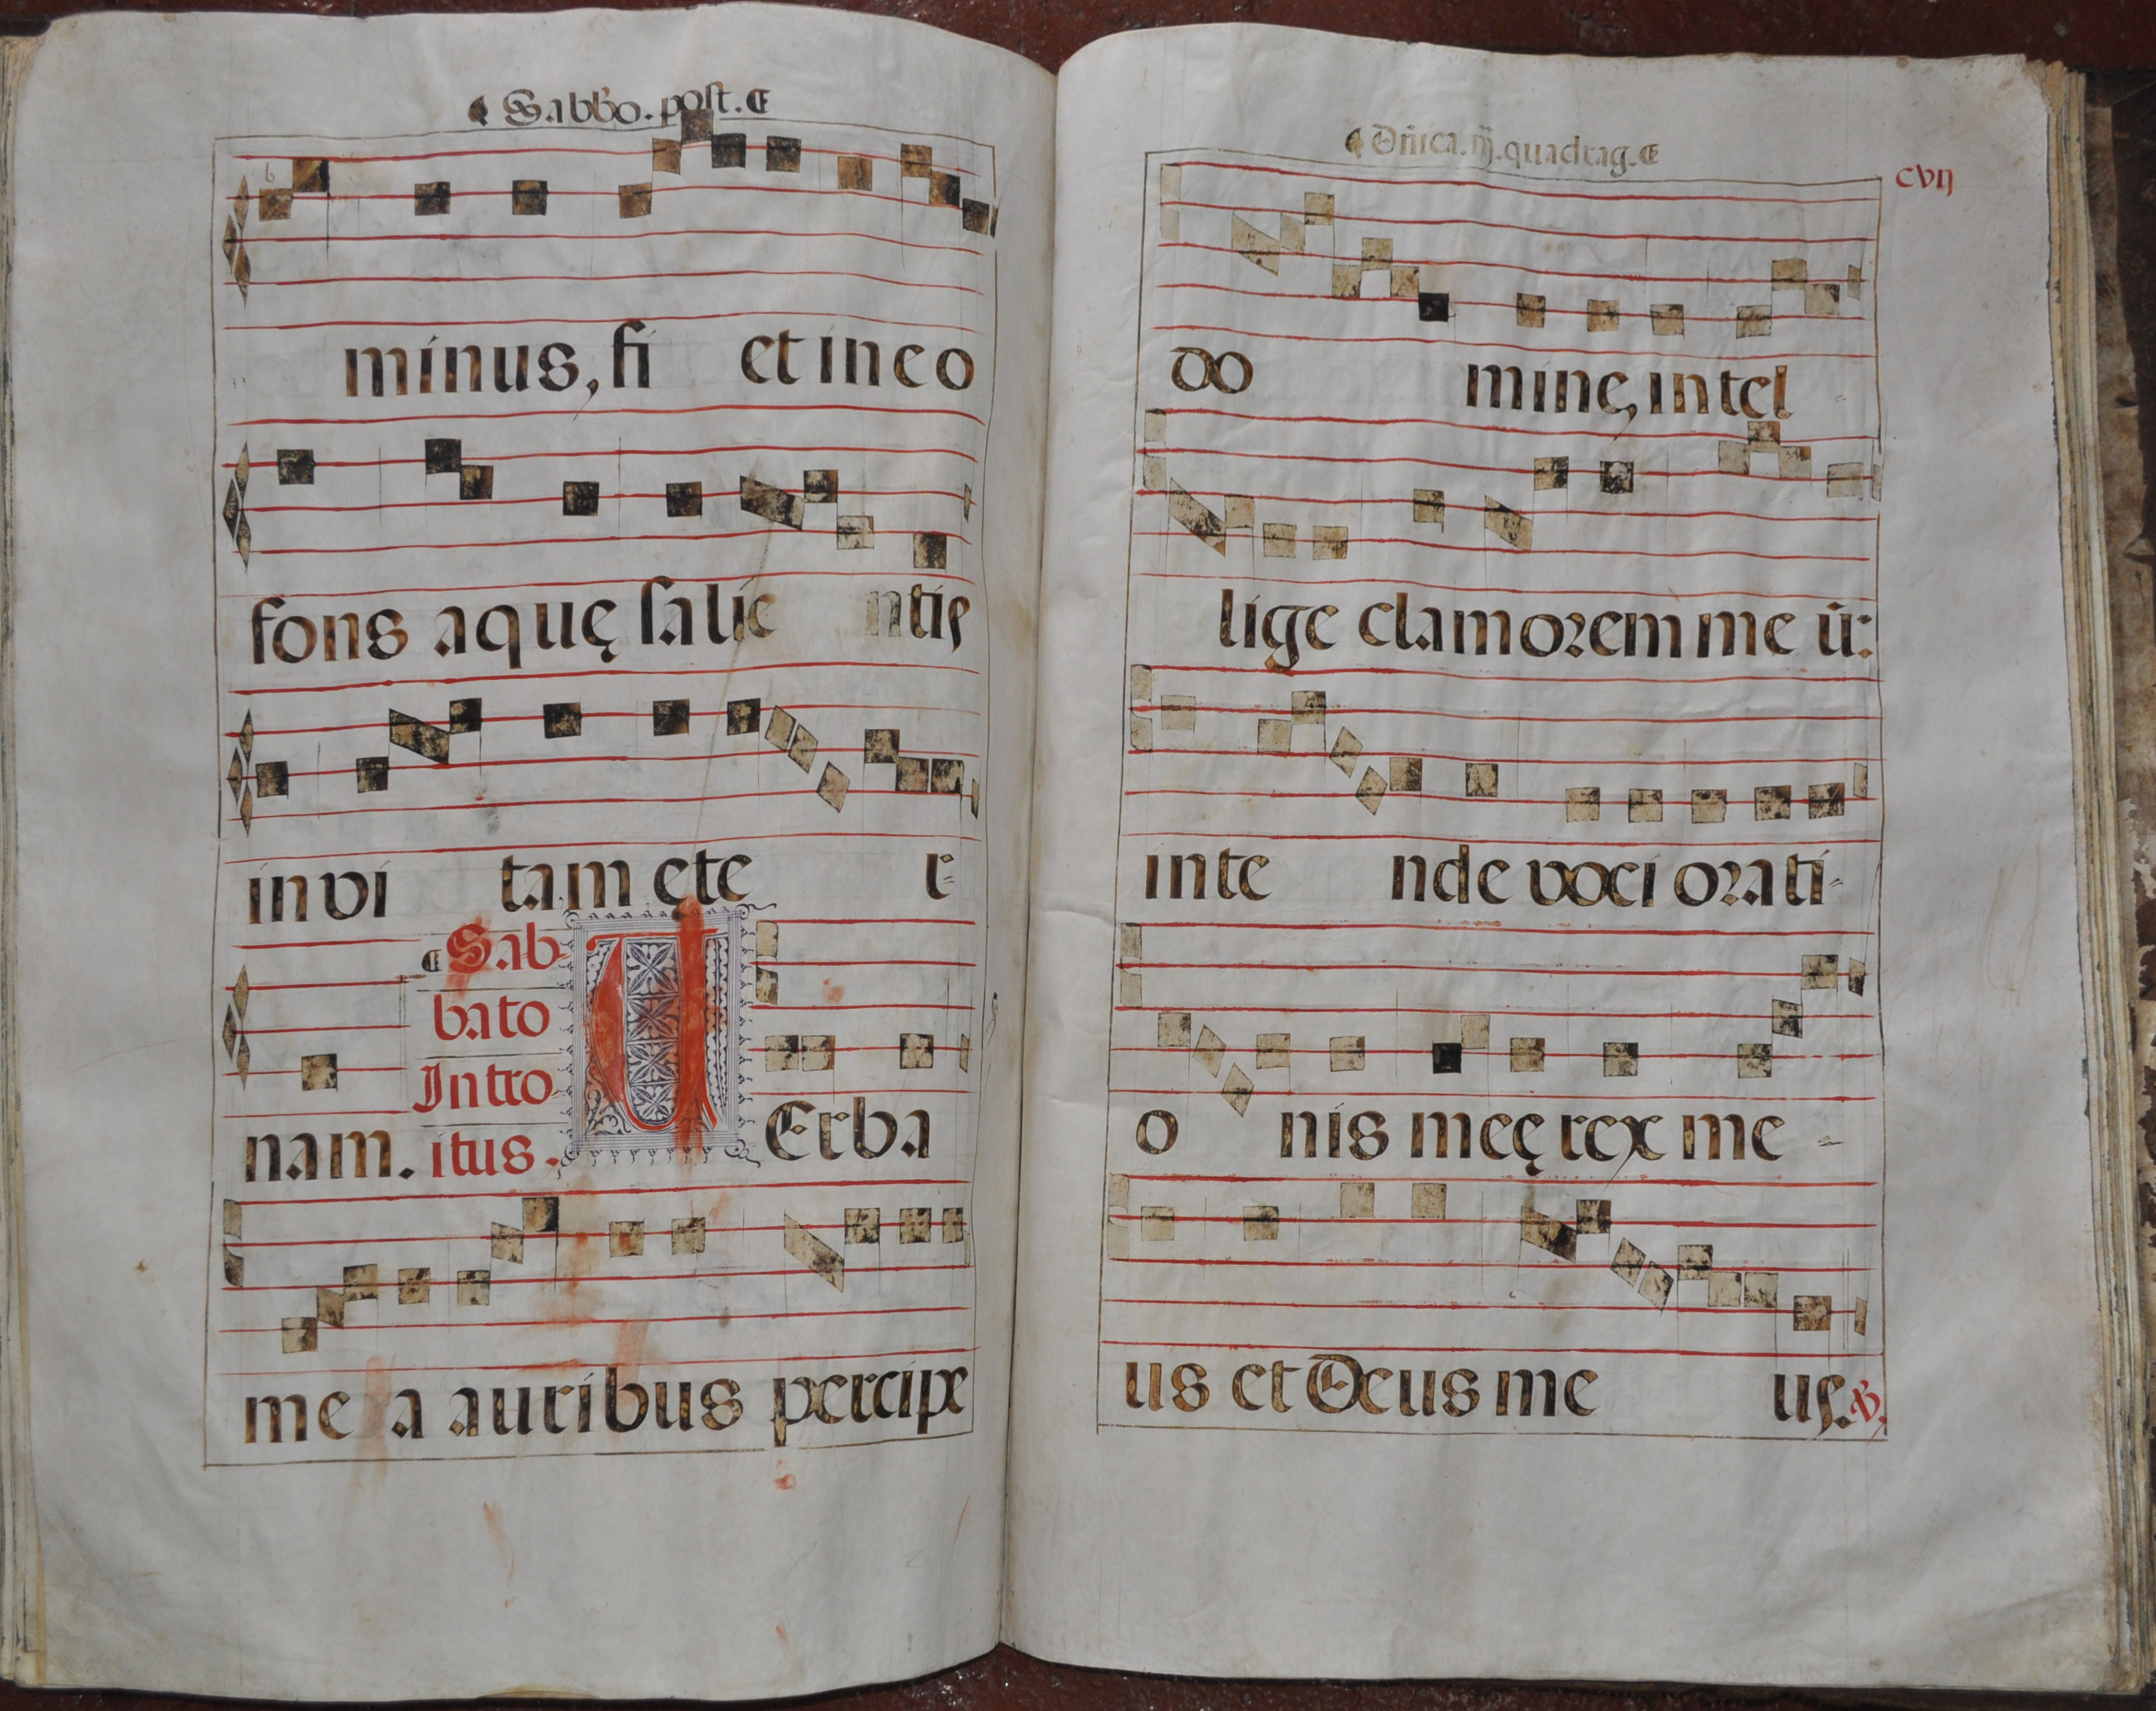 Sabbo. post.
minus, fi et in eo
fons aquę salie ntis
in vi tam ete r-
nam.
Sab-
bato
Intro
itus.
UErba
me a auribus percipe
Dñica. iij. quadrag.
CVIJ
do mine, intel-
lige clamorem me ũ:
inte nde voci orati-
o nis meę rex me-
us et Deus me us. ℣.